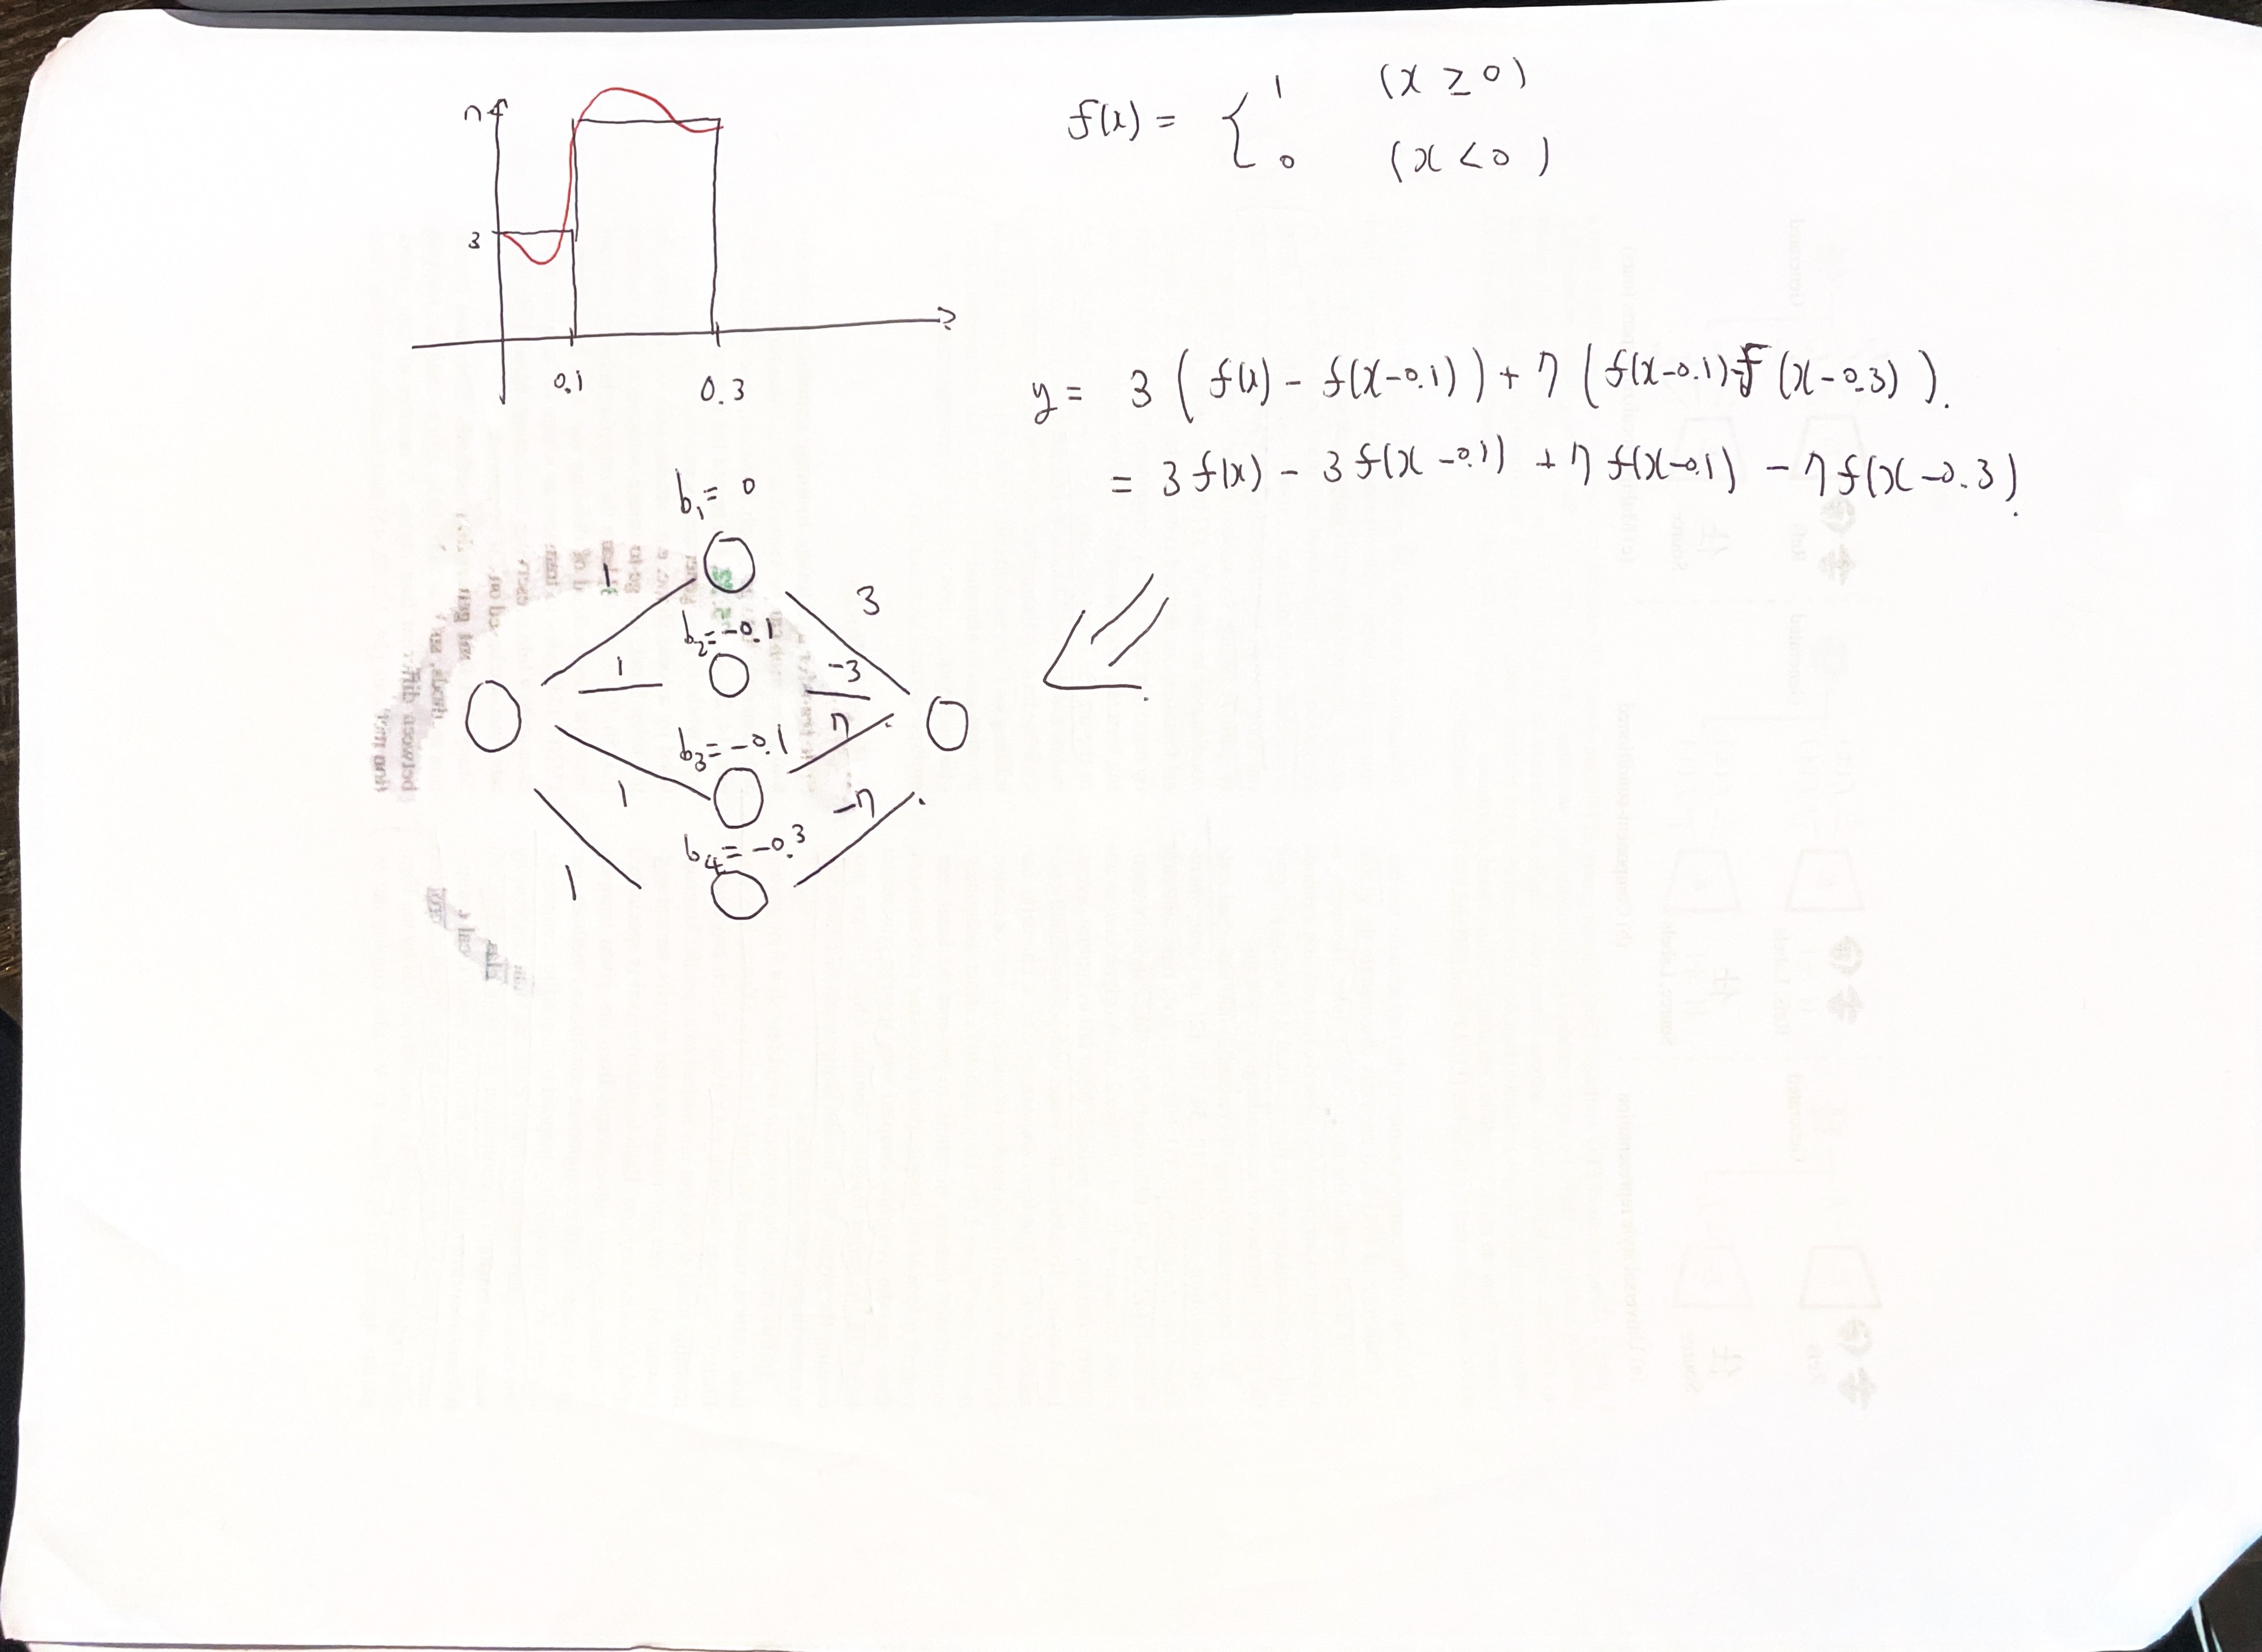 7
3
0.1
0.3
f(x) = { 1 (x ≥ 0)
0 (x < 0)
y = 3 ( f(x) - f(x-0.1) ) + 7 ( f(x-0.1) - f(x-0.3) ).
= 3 f(x) - 3 f(x-0.1) + 7 f(x-0.1) - 7 f(x-0.3).
b₁ = 0
1
3
b₂ = -0.1
1
-3
7
b₃ = -0.1
1
-7
b₄ = -0.3
1